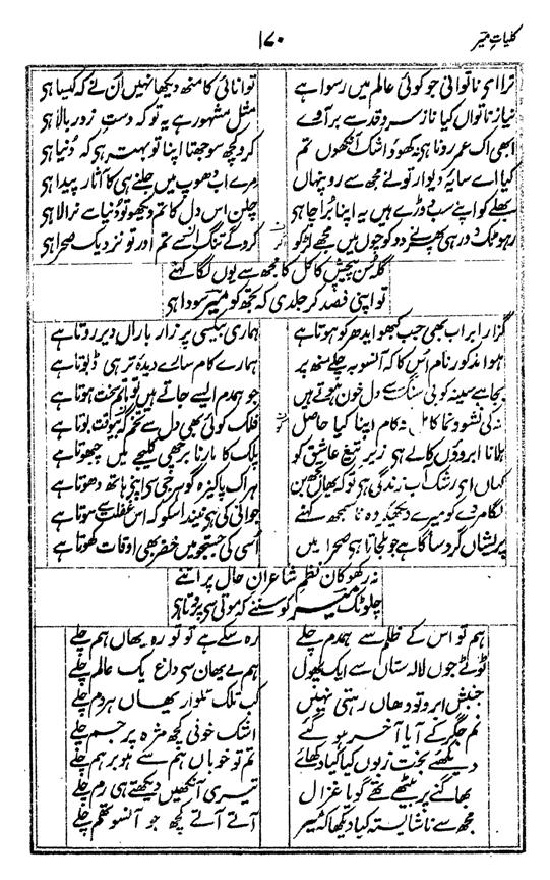 کلیات میر
۱۷۰
ترا ہی ناتوانی جو کوئی عالم میں رسوا ہے توانائی کا منھ دیکھا نہیں ان نے کہ کیسا ہی
نیاز ناتواں کیا ناز سرو قد سے بر آوے مثل مشہور ہے یہ تو کہ دست زور بالا ہی
ابھی اک عمر رونا ہی نہ کھوؤ اشک آنکھوں تم کرو کچھ سوجھتا اپنا تو بہتر ہی کہ دنیا ہی
کیا اے سایۂ دیوار تونے مجھ سے رو پنہاں مرے اب دھوپ میں جلنے ہی کا آثار پیدا ہی
بھلے کو اپنے سب دوڑے ہیں یہ اپنا برا چاہی چلن اس دل کا تم دیکھو تو دنیا سے نرالا ہی
رہو ٹک دور ہی پھرنے دو کوچوں میں مجھے لڑکو کروگے تنگ اسے تم اور تو نزدیک صحرا ہی
گلہ سن پیچش کاکل کا مجھ سے یوں لگا کہنے
تو اپنی فصد کر جلدی کہ تجھ کو میر سودا ہی
گزار ابر اب بھی جب کبھو ایدھر کو ہوتا ہے ہماری بیکسی پر زار باراں دیر روتا ہے
ہوا مذکور نام اس کا کہ آنسو بہ چلے منھ پر ہمارے کام سارے دیدۂ تر ہی ڈبوتا ہے
بجا ہے سینہ کوبی سنگ سے دل خون ہوتے ہیں جو ہمدم ایسے جاتے ہیں تو ماتم سخت ہوتا ہے
نہ کی نشو و نما کامل نہ کام اپنا کیا حاصل فلک کوئی بھی دل سے تخم کو بیوقت بوتا ہے
ہلانا ابروؤں کا لے ہی زیر تیغ عاشق کو پلک کا مارنا برچھی کلیجے میں چبھوتا ہے
کہاں اے رشک آب زندگی ہی تو کہ یہاں تجھ بن ہر اک پاکیزہ گوہر جی سے اپنے ہاتھ دھوتا ہے
لگا مردے کو میرے دیکھ کر وہ ناسمجھ کہنے جوانی کی ہی نیند اسکو کہ اس غفلت سے سوتا ہے
پریشاں گرد سا گاہے جو مل جاتا ہی صحرا میں اسی کی جستجو میں خضر بھی اوقات کھوتا ہے
نہ رکھو کان نظم شاعران حال پر اتنے
چلو ٹک میر کو سننے کہ موتی سے پروتا ہی
ہم تو اس کے ظلم سے ہمدم چلے رہ سکے ہے تو تو رہ یھاں ہم چلے
ٹوٹے جوں لالہ ستاں سے ایک پھول ہم لے یھاں سے داغ یک عالم چلے
جنبش ابرو تو وھاں رہتی نہیں کب تلک تلوار یھاں ہر دم چلے
نم جگر کے آیا آخر ہو گئے اشک خونی کچھ مژہ پر جم چلے
دیکھئے بخت زبوں کیا کیا دکھائے تم تو خوباں ہم سے ہو برہم چلے
بھاگنے پر بیٹھے تھے گویا غزال تیری آنکھیں دیکھتے ہی رم چلے
مجھ سے ناشایستہ کیا دیکھا کہ میر آتے آتے کچھ جو آنسو تھم چلے